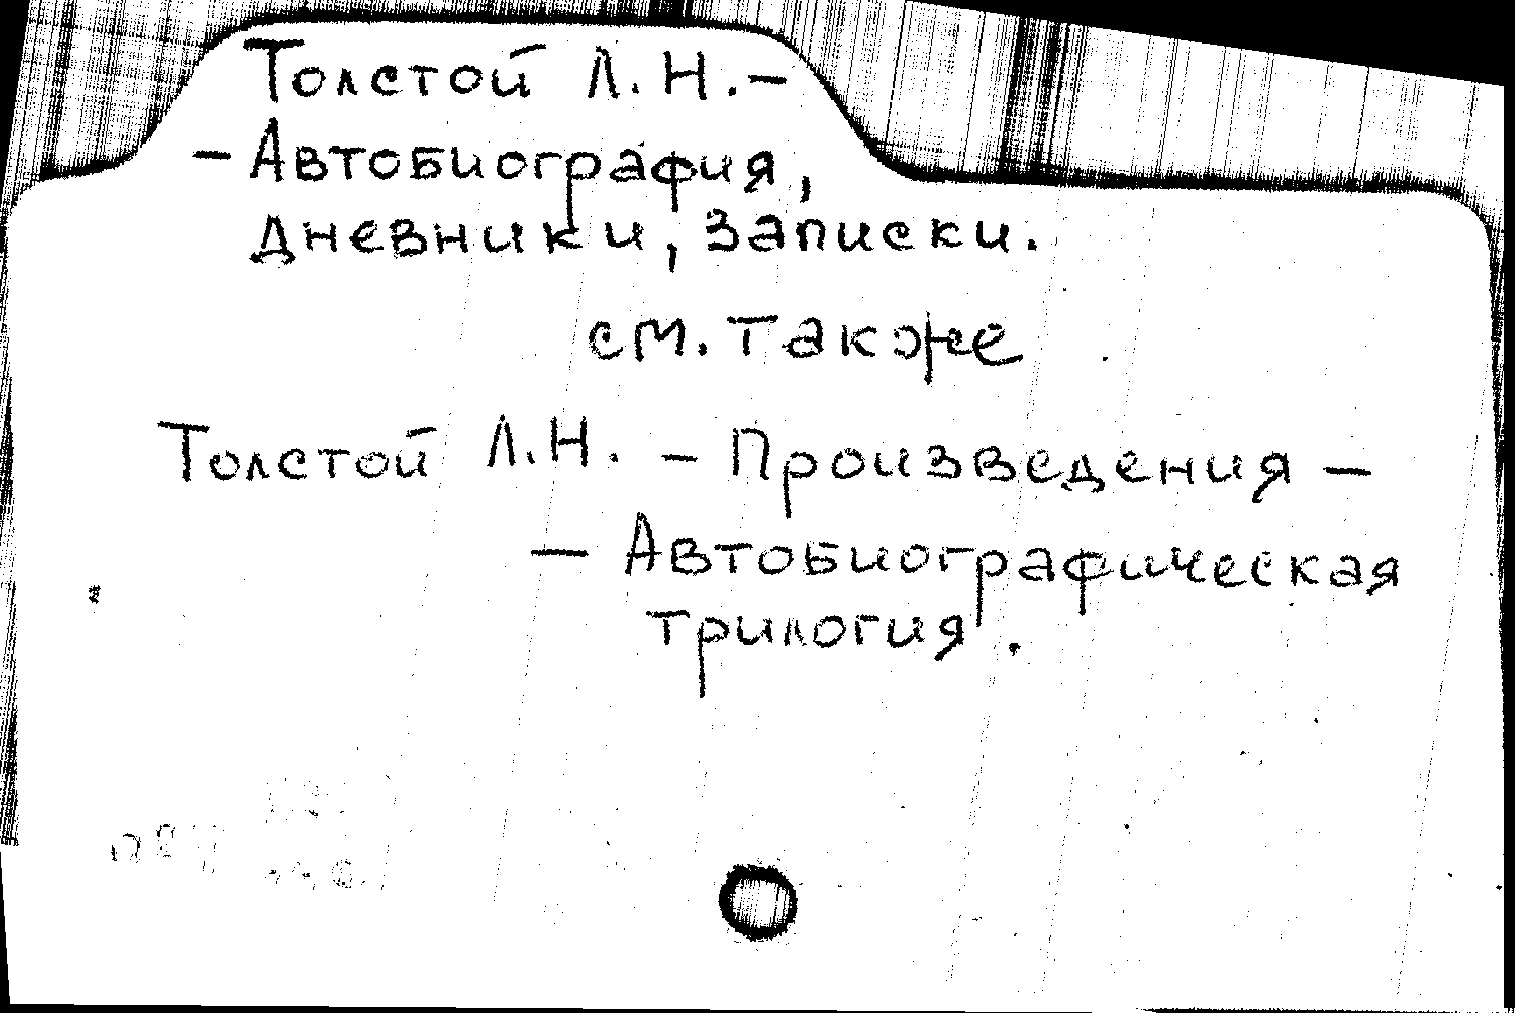 Толстой Л.Н.–
– Автобиография,
дневники, записки.
см. также
Толстой Л.Н. – Произведения –
– Автобиографическая
трилогия.